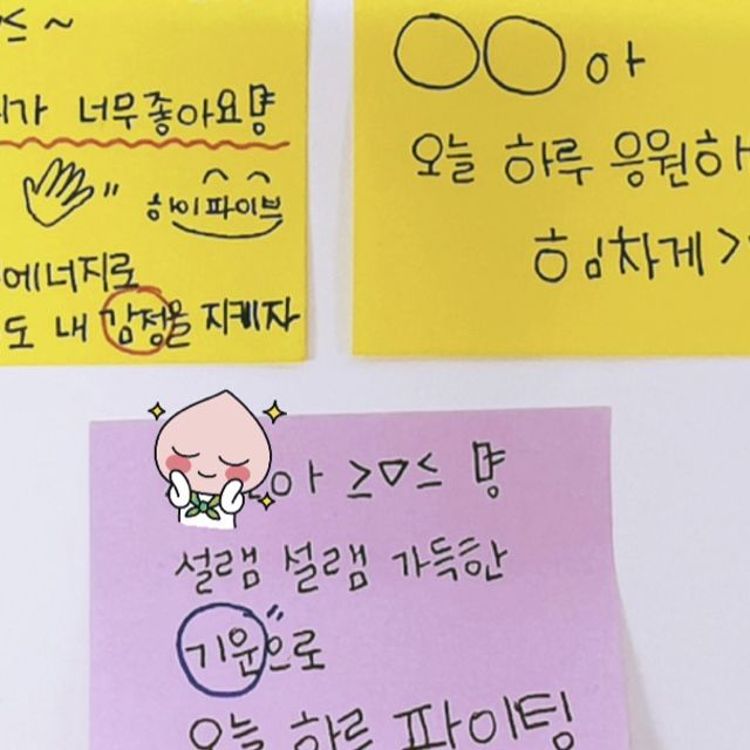 ≤~
가 너무좋아요먕
하이파이브
에너지로
도 내 감정을 지케자
○○아
오늘 하루 응원하
힘차게 >
아 ≥▽≤ 먕
설램 설램 가득한
기운으로
오늘 하루 파이팅